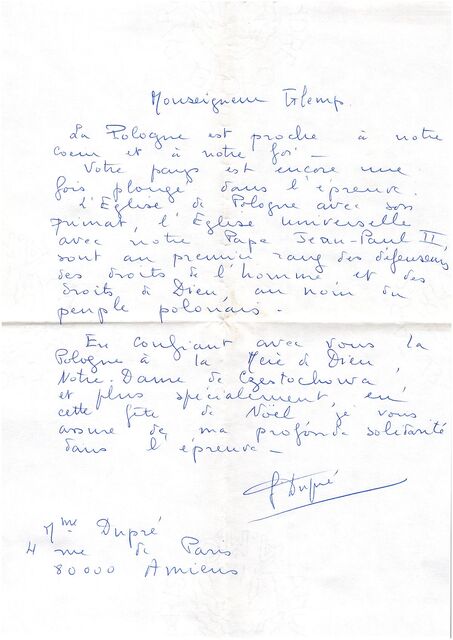 Monseigneur Glemp.
La Pologne est proche à notre
coeur et à notre foi -
Votre pays est encore une
fois plongé dans l'épreuve.
L'Eglise de Pologne avec son
primat, l'Eglise universelle
avec notre Pape Jean-Paul II,
sont au premier rang des défenseurs
des droits de l'homme et des
droits de Dieu, au nom du
peuple polonais.
En confiant avec vous la
Pologne à la Mère de Dieu
Notre-Dame de Częstochowa,
et plus spécialement, en
cette fête de Noël je vous
assure de ma profonde solidarité
dans l'épreuve -
Dupré
Mme Dupré
4 rue de Paris
80000 Amiens